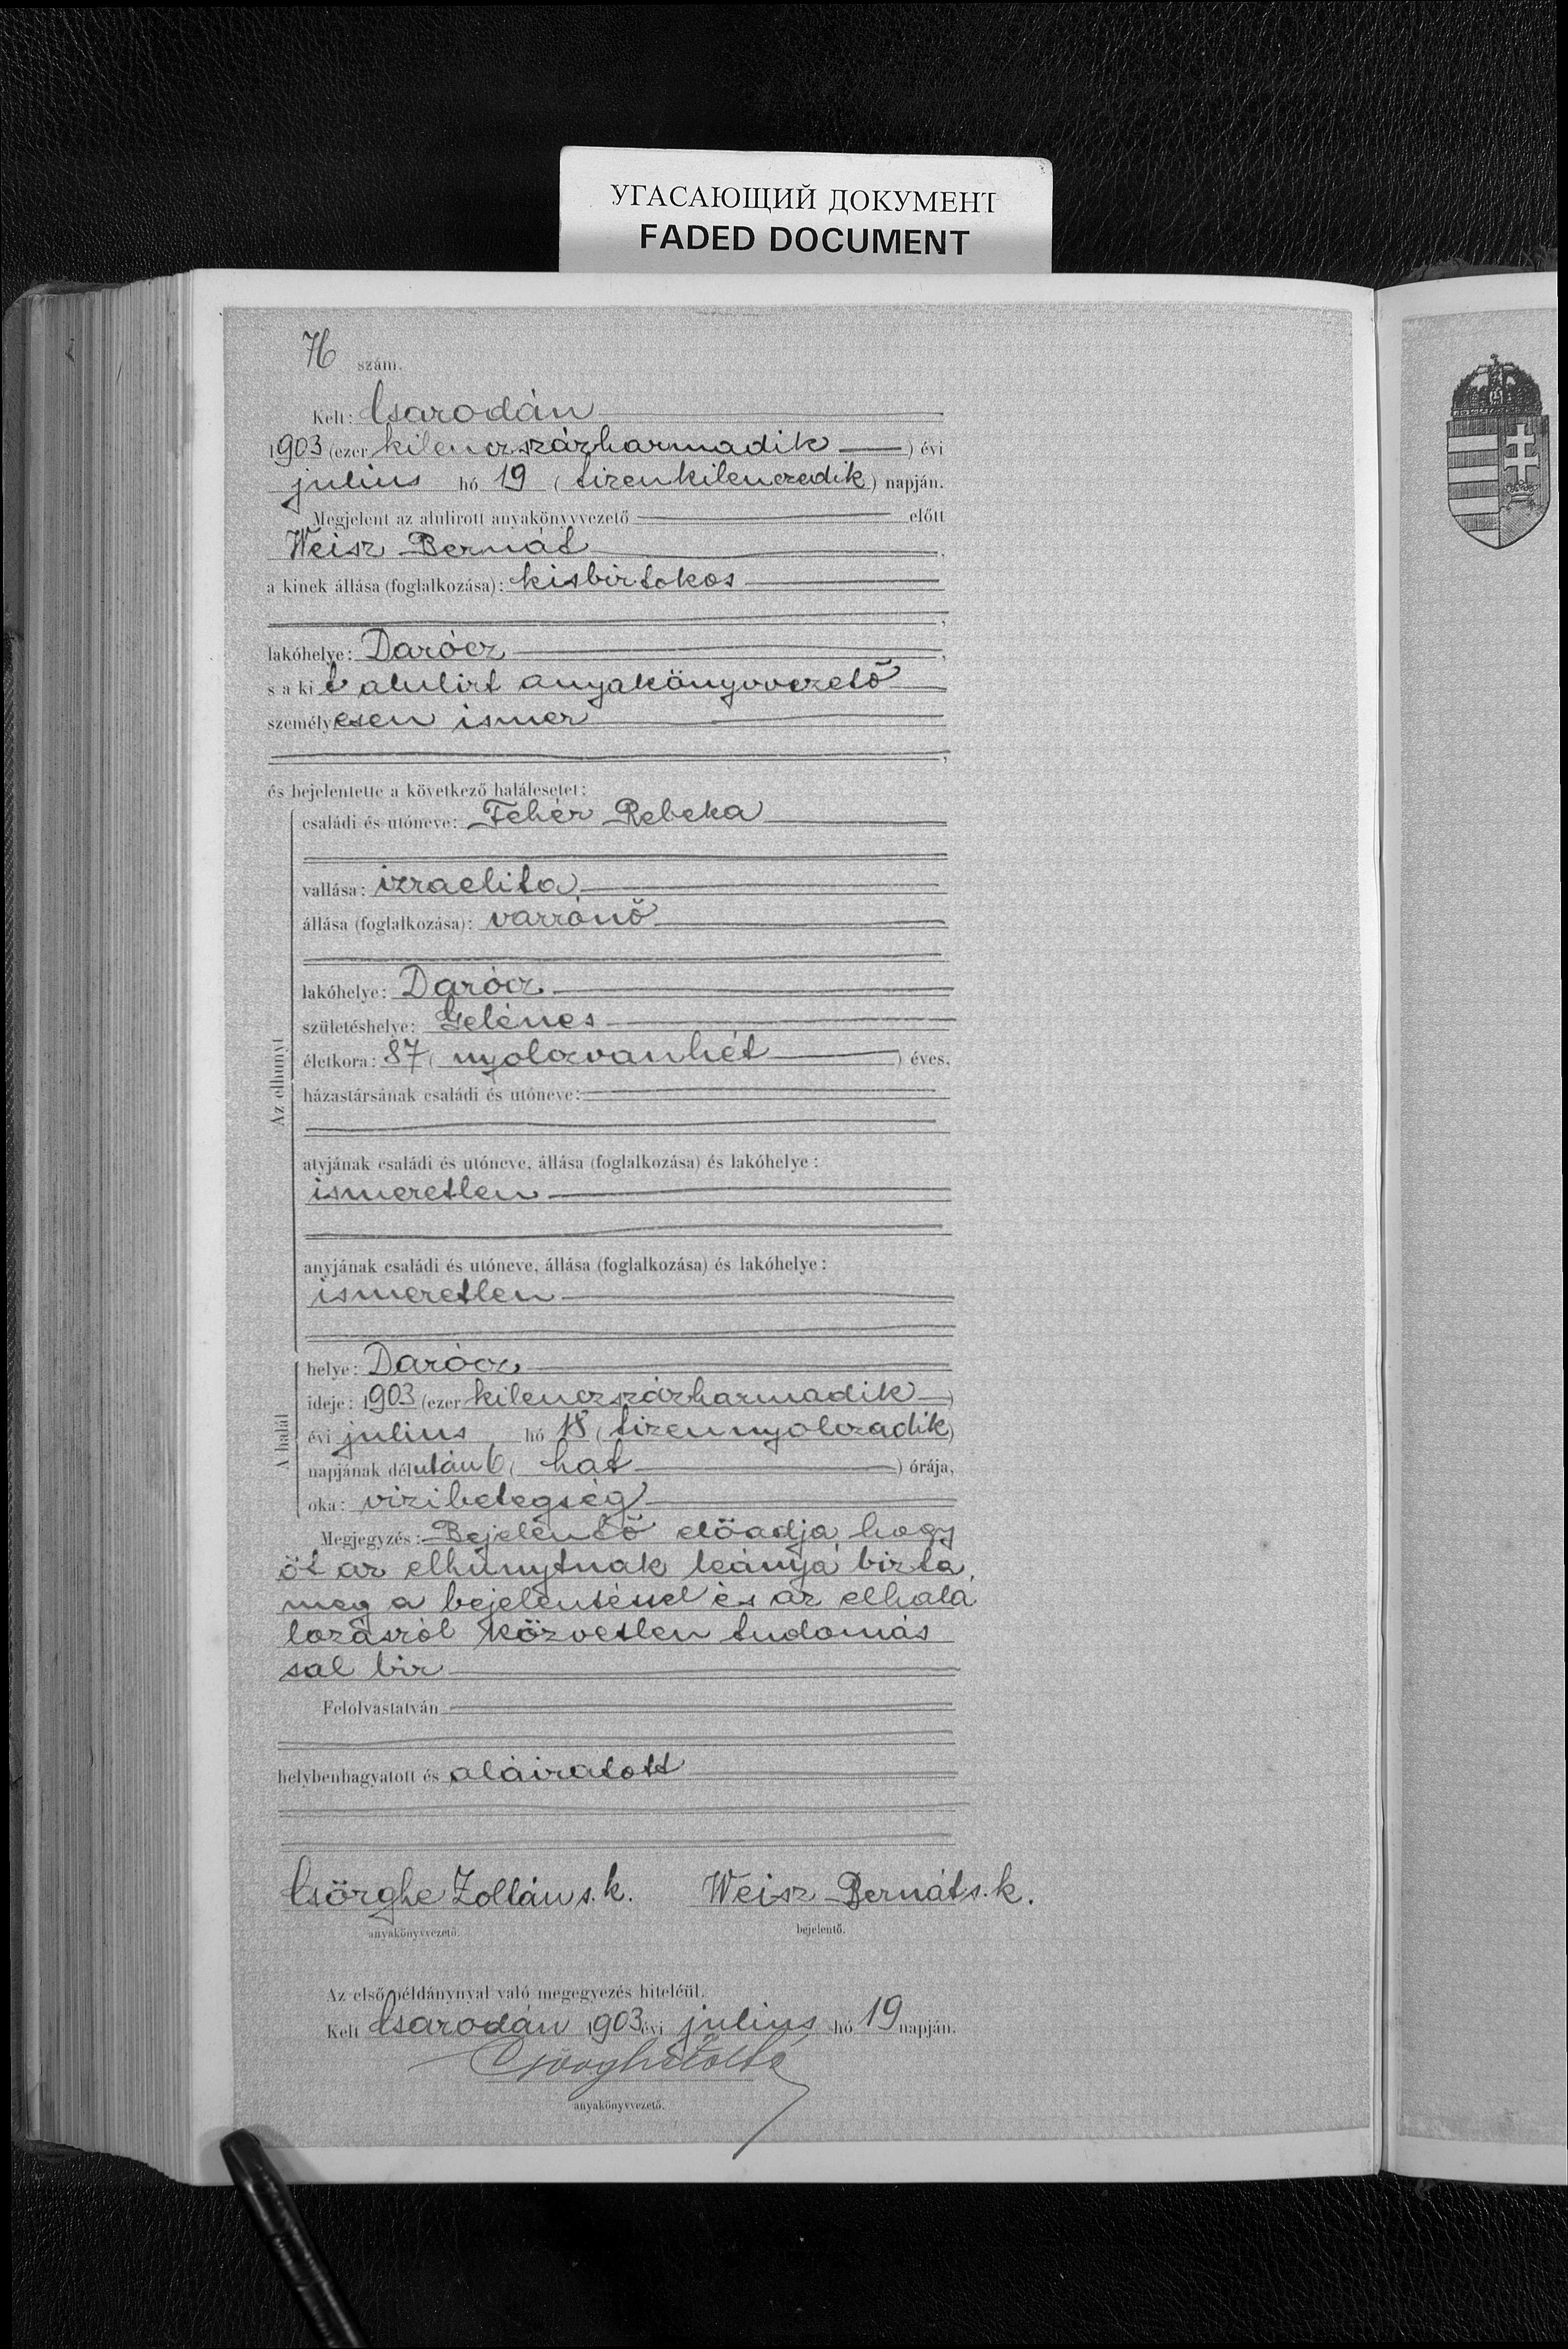 УГАСАЮЩИЙ ДОКУМЕНТ
FADED DOCUMENT
76 szám.
Kelt: Csarodán
1903 (ezer kilenczszázharmadik) évi
julius hó 19 (tizenkilenczedik) napján.
Megjelent az alulirott anyakönyvvezető előtt
Weisz Bernát,
a kinek állása (foglalkozása): kisbirtokos
,
lakóhelye: Darócz,
s a kit alulirt anyakönyvvezető
személyesen ismer
,
és bejelentette a következő halálesetet:
Az elhunyt
családi és utóneve: Fehér Rebeka
vallása: izraelita
állása (foglalkozása): varrónő
lakóhelye: Darócz
születéshelye: Gelénes
életkora: 87 (nyolczvanhét) éves,
házastársának családi és utóneve:
atyjának családi és utóneve, állása (foglalkozása) és lakóhelye:
ismeretlen
anyjának családi és utóneve, állása (foglalkozása) és lakóhelye:
ismeretlen
A halál
helye: Darócz
ideje: 1903 (ezer kilenczszázharmadik)
évi julius hó 18 (tizennyolczadik)
napjának délután 6 (hat) órája,
oka: vizibetegség
Megjegyzés: Bejelentő előadja, hogy
őt az elhunytnak leánya bizta
meg a bejelentéssel és az elhalá
lozásról közvetlen tudomás
sal bir
Felolvastatván
helybenhagyatott és aláiratott
Csörghe Zoltán s. k. Weisz Bernát s. k.
anyakönyvvezető. bejelentő.
Az első példánynyal való megegyezés hiteléül.
Kelt Csarodán 1903 évi julius hó 19 napján.
Csörghe Zoltán
anyakönyvvezető.